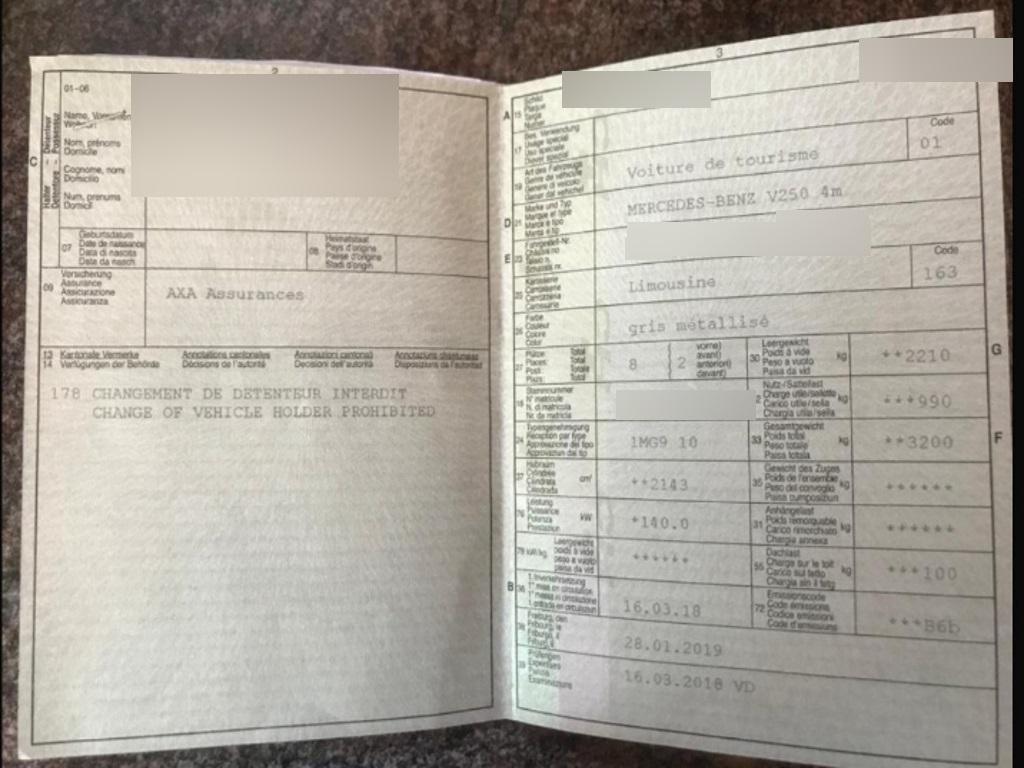 2
01-06
C
Halter - Détenteur
Detentore - Possessur
Name, Vornamen
Wohnort
Nom, prénoms
Domicile
Cognome, nomi
Domicilio
Num, prenums
Domicil
07
Geburtsdatum
Date de naissance
Data di nascita
Data da nasch.
08
Heimatstaat
Pays d'origine
Paese d'origine
Stadi d'origin
09
Versicherung
Assurance
Assicurazione
Assicuranza
AXA Assurances
13 Kantonale Vermerke Annotations cantonales Annotazioni cantonali Annotaziuns chantunalas
14 Verfügungen der Behörde Décisions de l'autorité Decisioni dell'autorità Disposiziuns da l'autoritad
178 CHANGEMENT DE DETENTEUR INTERDIT
CHANGE OF VEHICLE HOLDER PROHIBITED
3
A 15
Schild
Plaque
Targa
Numer
17
Bes. Verwendung
Usage spécial
Uso speciale
Diever spezial
19
Art des Fahrzeugs
Genre de véhicule
Genere di veicolo
Gener dal vehichel
Voiture de tourisme
Code
01
D 21
Marke und Typ
Marque et type
Marca e tipo
Marca e tip
MERCEDES-BENZ V250 4m
E 23
Fahrgestell-Nr.
Châssis no
Telaio n.
Schassis nr.
25
Karosserie
Carrosserie
Carrozzeria
Carossaria
Limousine
Code
163
26
Farbe
Couleur
Colore
Colur
gris métallisé
27
Plätze: Total
Places: Total
Posti: Totale
Plazs: Total
8
2
vorne)
avant)
anteriori)
davant)
30
Leergewicht
Poids à vide
Peso a vuoto
Paisa da vid
kg
**2210
G
18
Stammnummer
N° matricule
N. di matricola
Nr. da matricla
Nutz-/Sattellast
Charge utile/sellette
Carico utile/sella
Chargia utila/sella
kg
***990
24
Typengenehmigung
Réception par type
Approvazione del tipo
Approvaziun dal tip
1MG9 10
33
Gesamtgewicht
Poids total
Peso totale
Paisa totala
kg
**3200
F
37
Hubraum
Cylindrée
Cilindrata
Cilindrada
cm³
**2143
35
Gewicht des Zuges
Poids de l'ensemble
Peso del convoglio
Paisa cumposiziun
kg
******
76
Leistung
Puissance
Potenza
Prestaziun
kW
*140.0
31
Anhängelast
Poids remorquable
Carico rimorchiato
Chargia annexa
kg
******
78 kW/kg
Leergewicht
poids à vide
peso a vuoto
paisa da vid
******
55
Dachlast
Charge sur le toit
Carico sul tetto
Chargia sin il tetg
kg
***100
B 36
1. Inverkehrsetzung
1re mise en circulation
1a messa in circolazione
1. entrada en circulaziun
16.03.18
72
Emissionscode
Code émissions
Codice emissioni
Code d'emissiuns
***B6b
38
Freiburg, den
Fribourg, le
Friburgo, il
Friburg, il
28.01.2019
39
Prüfungen
Expertises
Perizie
Examinaziuns
16.03.2018 VD